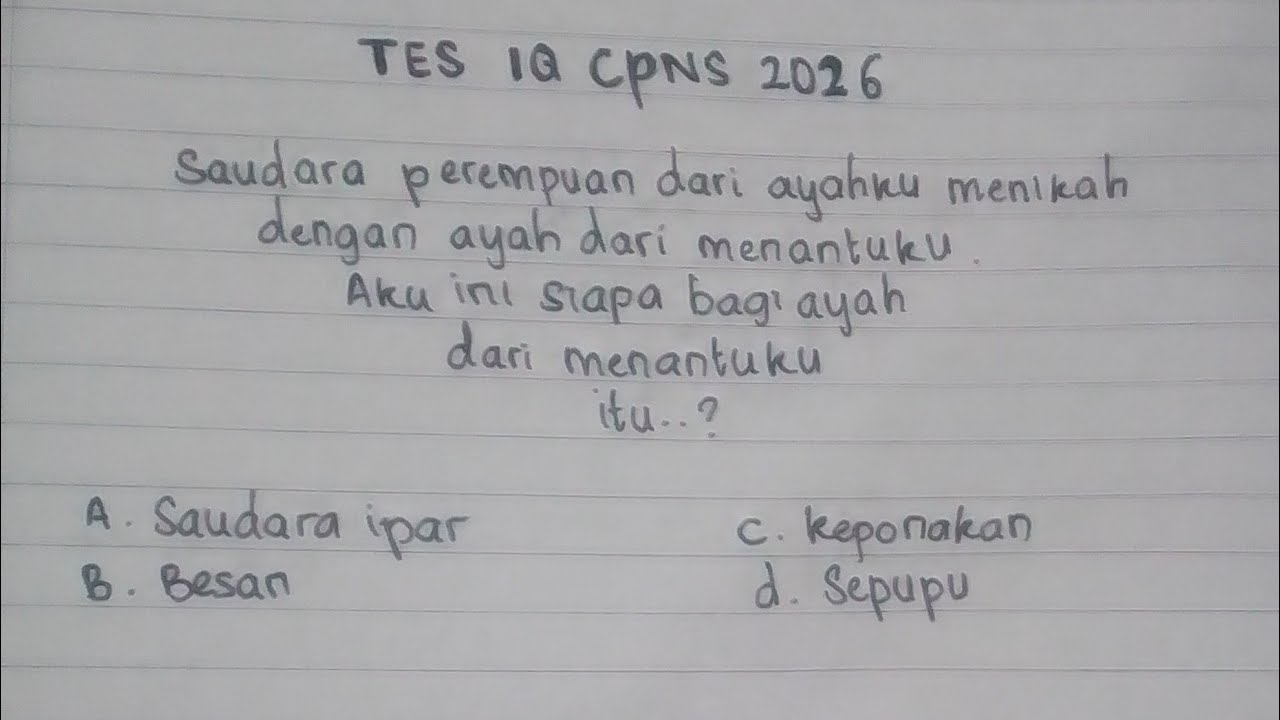 TES IQ CPNS 2026
Saudara perempuan dari ayahku menikah
dengan ayah dari menantuku.
Aku ini siapa bagi ayah
dari menantuku
itu..?
A. Saudara ipar
B. Besan
C. Keponakan
d. Sepupu